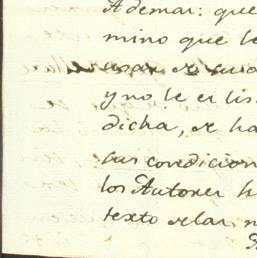 Ademar: que
mino que le
usar de su
y no le es lis
dicha, de ha
sus condicion
los Autores h
texto de las n